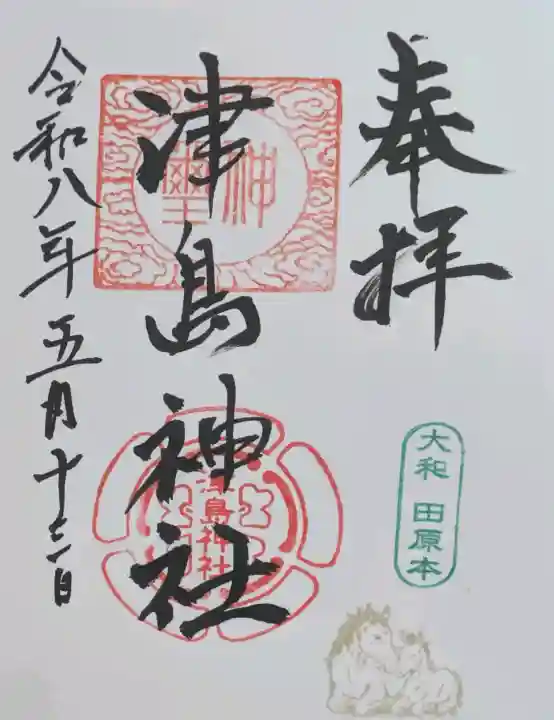 奉拝
大和 田原本
津島神社
神璽
津島神社
令和八年五月十三日